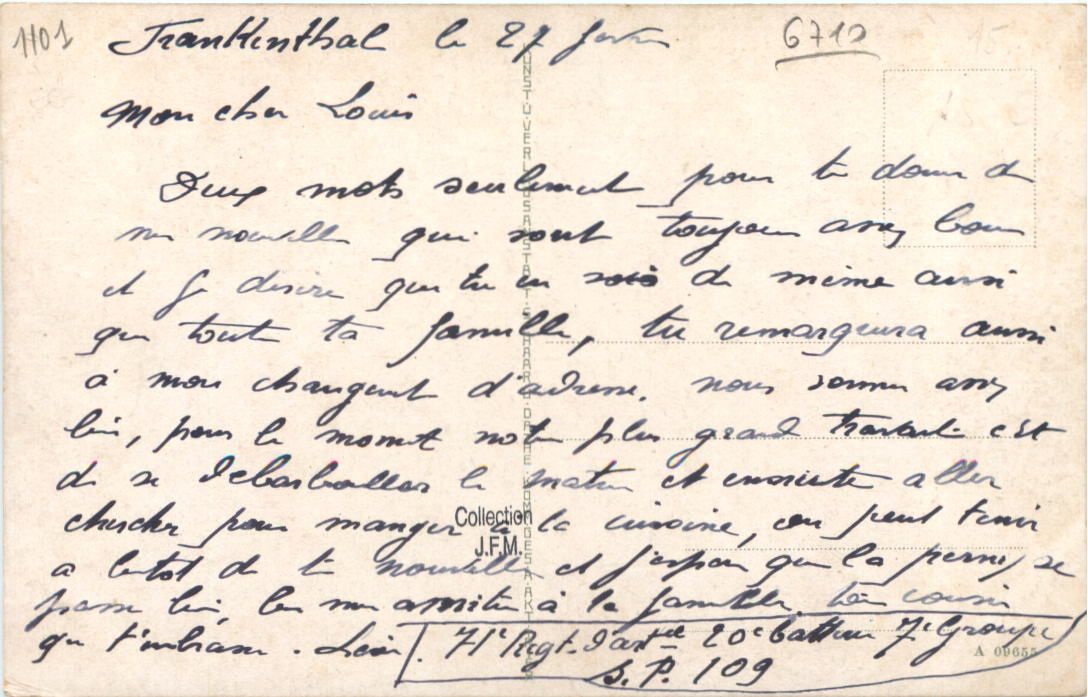 1101
6719
Frankenthal le 27 fevrier
Mon cher Louis
Deux mots seulement pour te donner de
mes nouvelles qui sont toujours assez bonnes
et je desire que tu en sois de même ainsi
que toute ta famille, tu remarquera aussi
à mon changent d'adresse. nous sommes assez
bien, pour le momet notre plus grand travail c'est
de se debarbouller le matin et ensuite aller
chercher pour manger à la cuisine, on peut tenir
a bientot de tes nouvelles et j'espere que la permis, se
passe bien, mes amities à la famille, ton cousin
qui t'embrasse. Léon. 71e Regt. d'artie 20e batterie 7e Groupe
S. P. 109
Collection
J.F.M.
A 09655